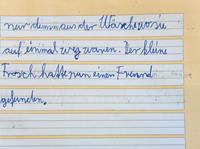 nur denn aus der Wäsche wo sie
auf einmal weg waren. Der kleine
Frosch hatte nun einen Freund
gefunden.